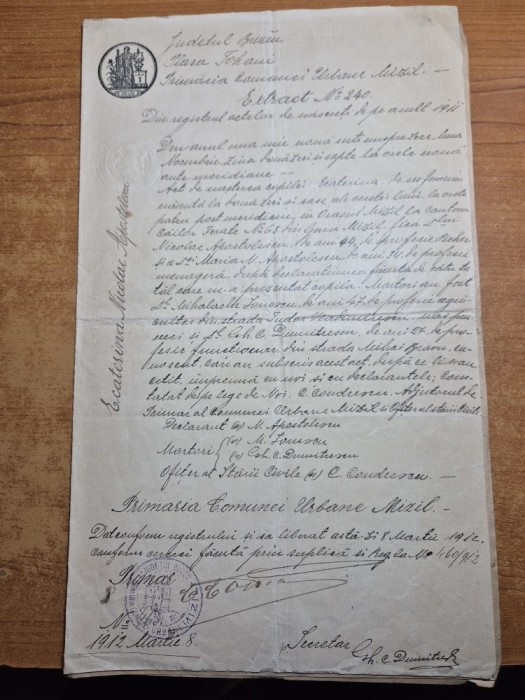 Judetul Buzĕu
Plasa Tohani
Primăria Comunei Urbane Mizil. –
Extract No 240.
Din registrul actelor de nascuti pe anul 1911
Din anul una mie nouă sute unspre zece luna
Noembrie ziua două zeci si sapte la orele nouă
ante meridiane –
Act de nascerea copilei: Ecaterina, de sex femenin
născută la două zeci si sase ale acestei luni, la orele
patru post meridiane, in Orasul Mizil la cantonu
Căilor Ferate No 63 din Gara Mizil, fiica D-lui
Nicolae Apostolescu de ani 44, de profesie
si a D-nei Maria N. Apostolescu de ani 34 de profesie
menageră. După declaratiunea făcută de către ta
tăl care ne-a presentat copila. Martori au fost
D-l Mihalache Ionescu de ani 47 de profesie agri
cultor din strada Tudor Vladimirescu
si D-l Gh. C. Dumitrescu, de ani 27 de pro
fesie functionar din strada Mihai Bravu,
cari au subscris acest act, după ce li s'au
cetit, impreună cu noi si cu declarantele; Cons
tatat după lege de Noi. C. Condrescu. Adjutorul de
Primar al Comunei Urbane Mizil si Ofiter al starei Civile
Declarant (ss) N. Apostolescu
Martori (ss) M. Ionescu
(ss) Gh. C. Dumitrescu
Ofiter al Stării Civile (ss) C. Condrescu. –
Ecaterina Nicolae Apostolescu
Primaria Comunei Urbane Mizil. –
Dat conform registrului si sa liberat astă zi 8 Martie 1912.
conform cererei făcută prin suplică si Regla No 460/912
Primar
No
1912 Martie 8
p. Secretar
Gh. C. Dumitrescu